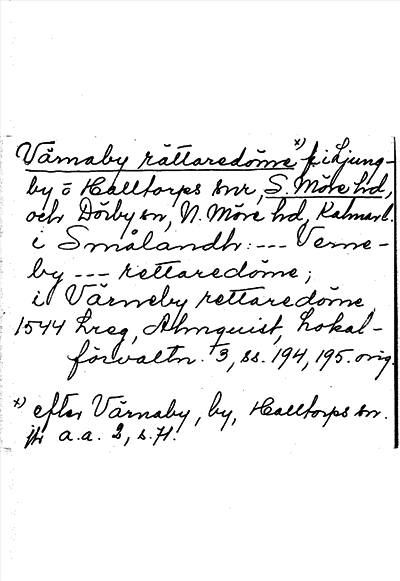 Värnaby rättaredöme x) f. i Ljung-
by o Halltorps snr, S. Möre hd,
och Dörby sn, N. Möre hd, Kalmar l.
i Smålandh: --- Verne-
by --- rettaredöme;
i Värneby rettaredöme
1544 hreg, Almquist, Lokal-
förvaltn. 3, ss. 194, 195. orig.
x) efter Värnaby, by, Halltorps sn.
jfr a.a. 2, s. 71.